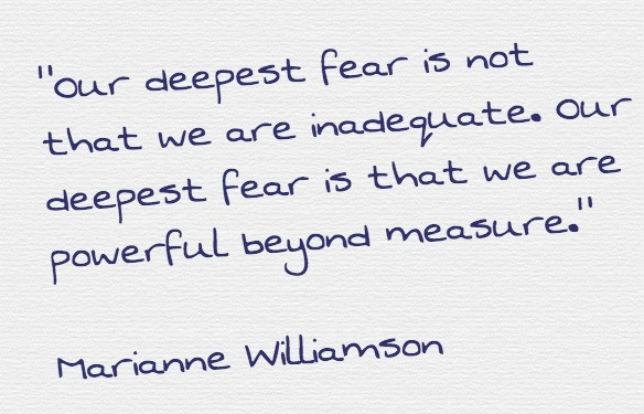 "Our deepest fear is not
that we are inadequate. Our
deepest fear is that we are
powerful beyond measure."
Marianne Williamson